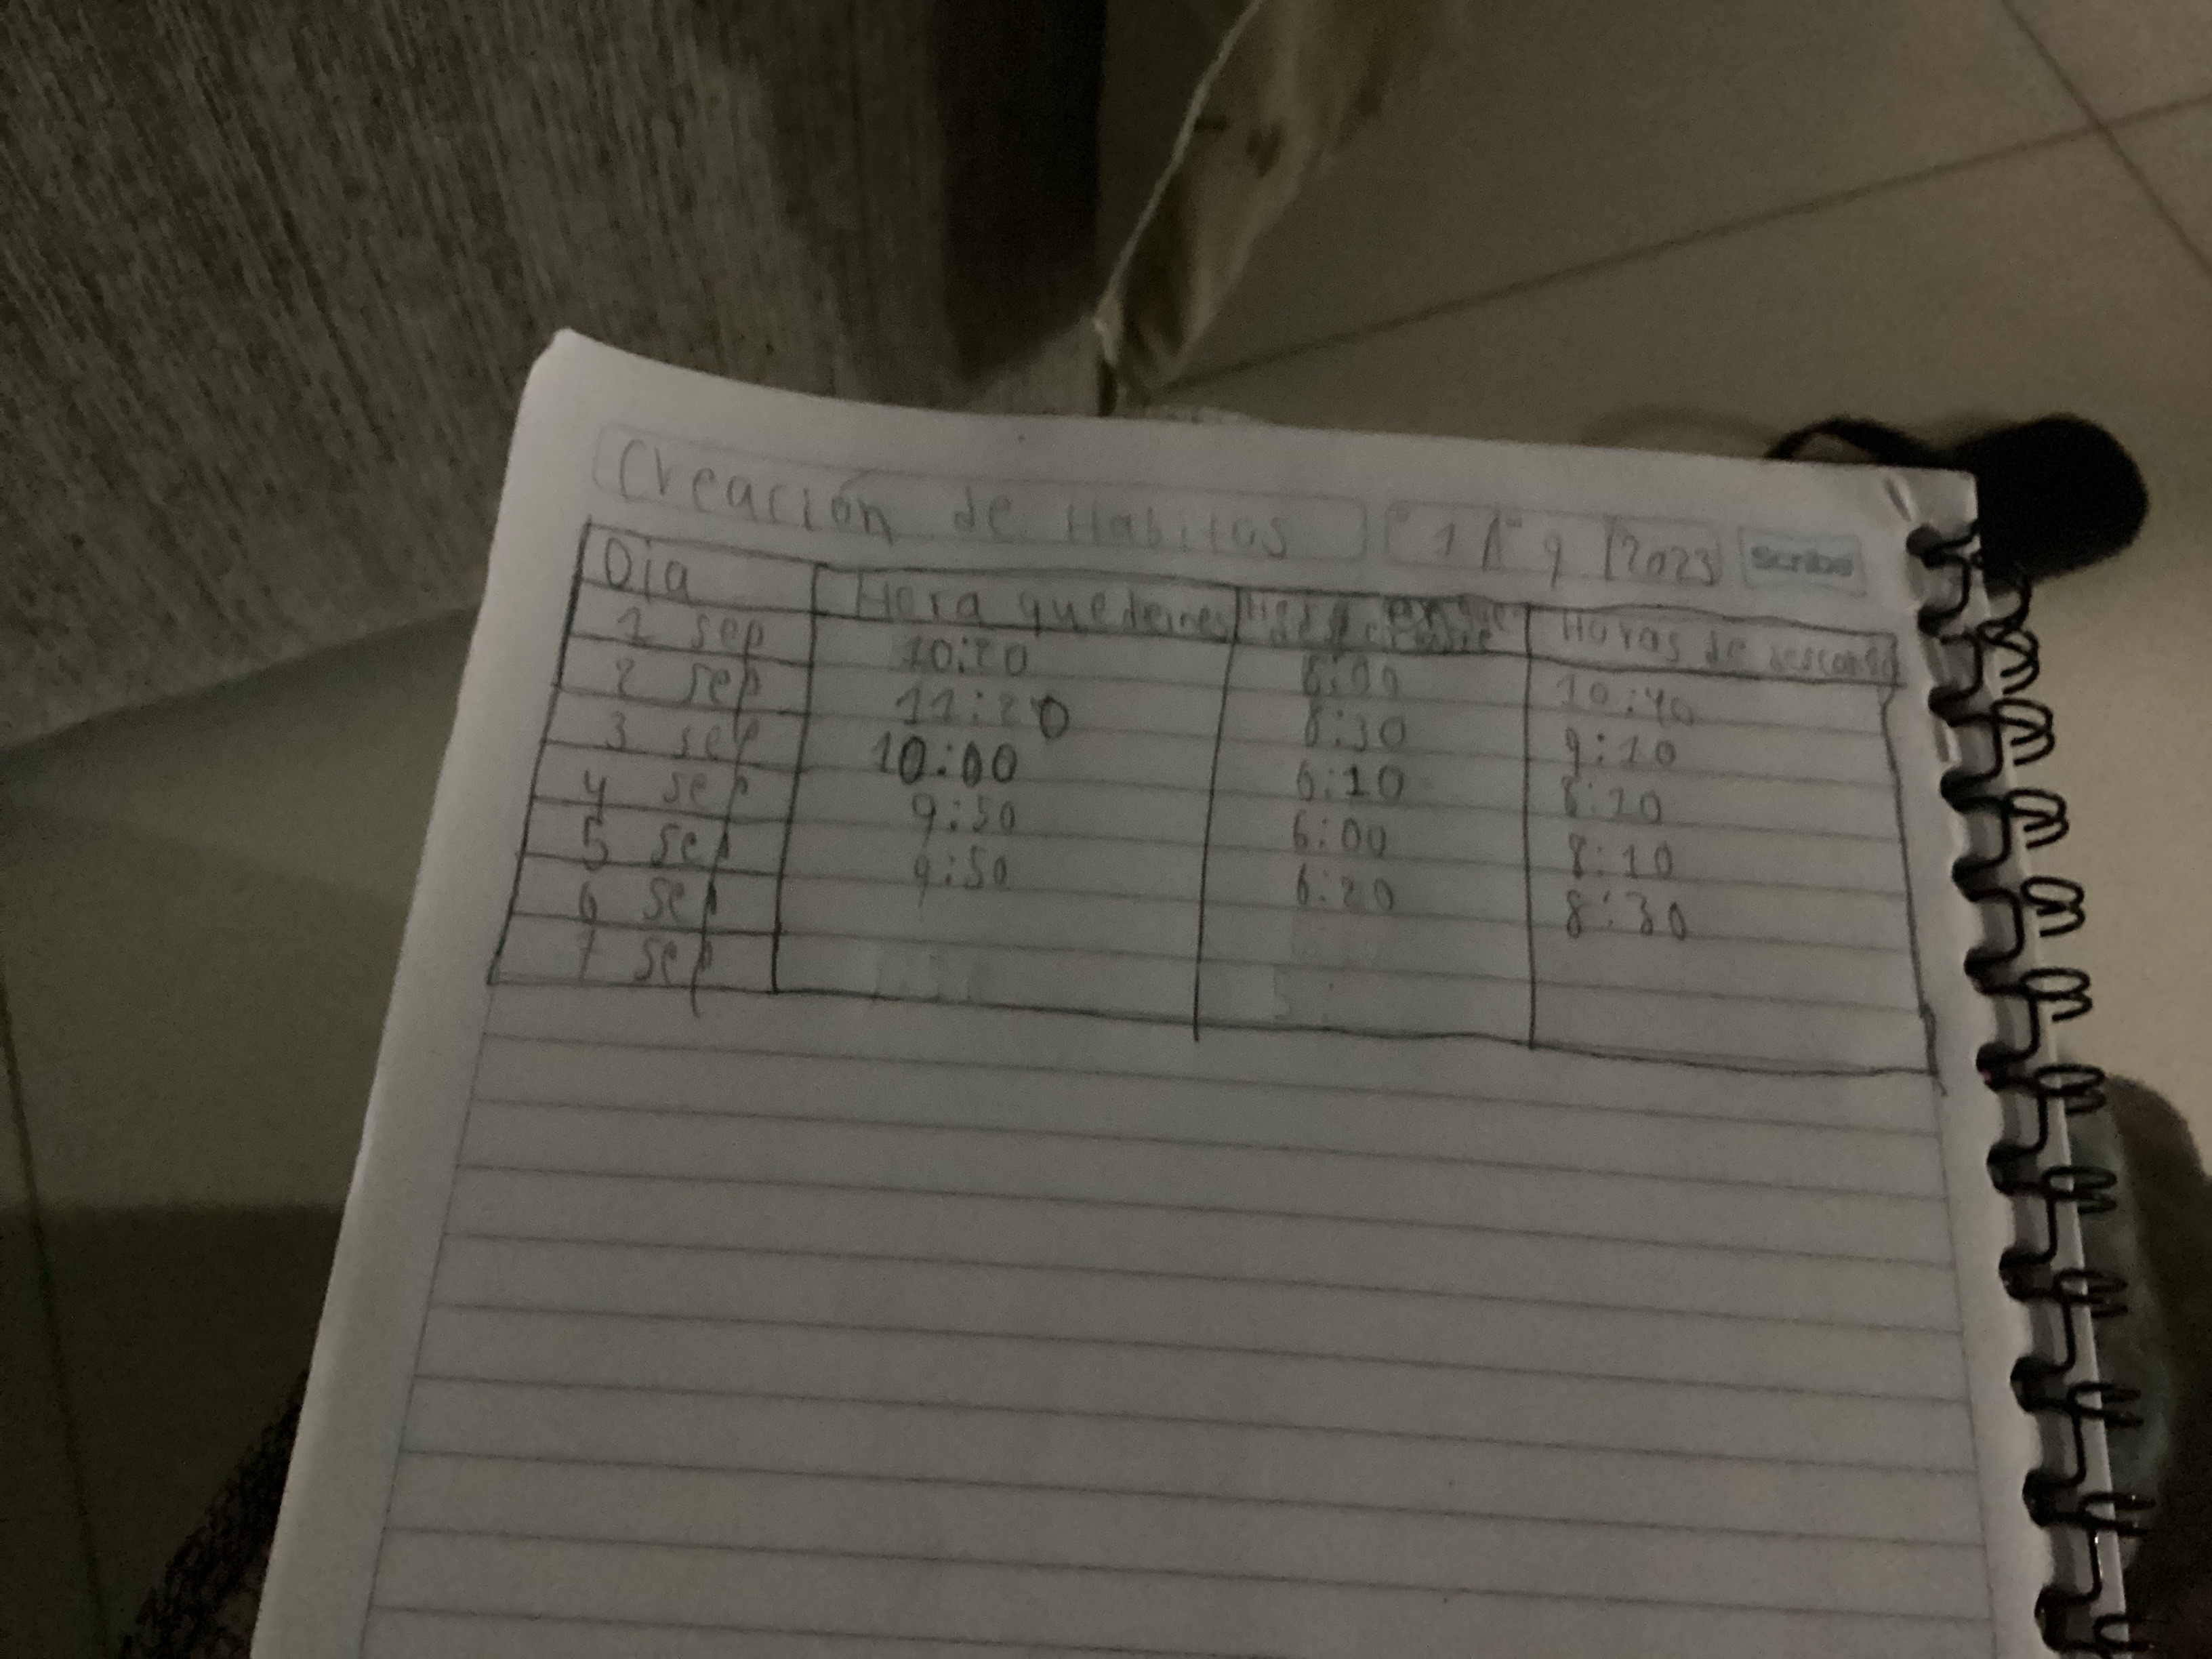 Creación de Habitos 1 9 2023 Scribe
Dia Hora que Horas de descanso
1 sep 10:20 8:00 10:40
2 sep 11:20 8:30 9:10
3 sep 10:00 6:10 8:10
4 sep 9:50 6:00 8:10
5 sep 9:50 6:20 8:30
6 sep
7 sep